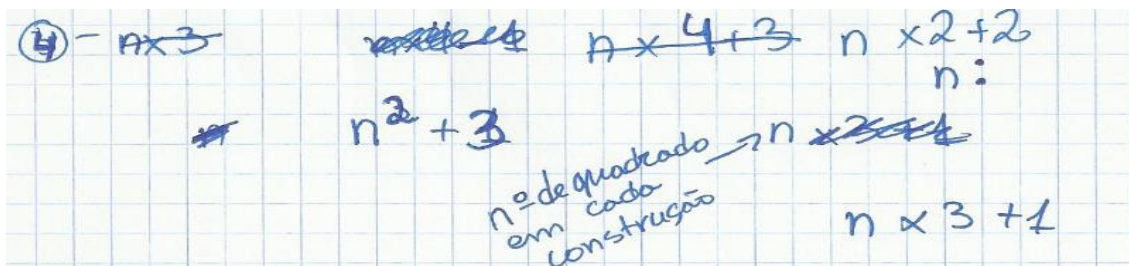 4 - n×3 n×4+3 n ×2+2
n:
n² + 3
nº de quadrado → n
em cada
construção
n × 3 +1